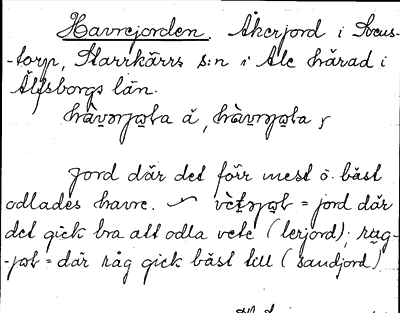 Havrejorden. Åkerjord i Svens-
-torp, Starrkärrs s:n i Ale härad i
Älfsborgs län.
hàvrjola å, hàvrjola
Jord där det förr mest o. bäst
odlades havre. — vètejol = jord där
det gick bra att odla vete (lerjord); rug-
-jol = där råg gick bäst till (sandjord)